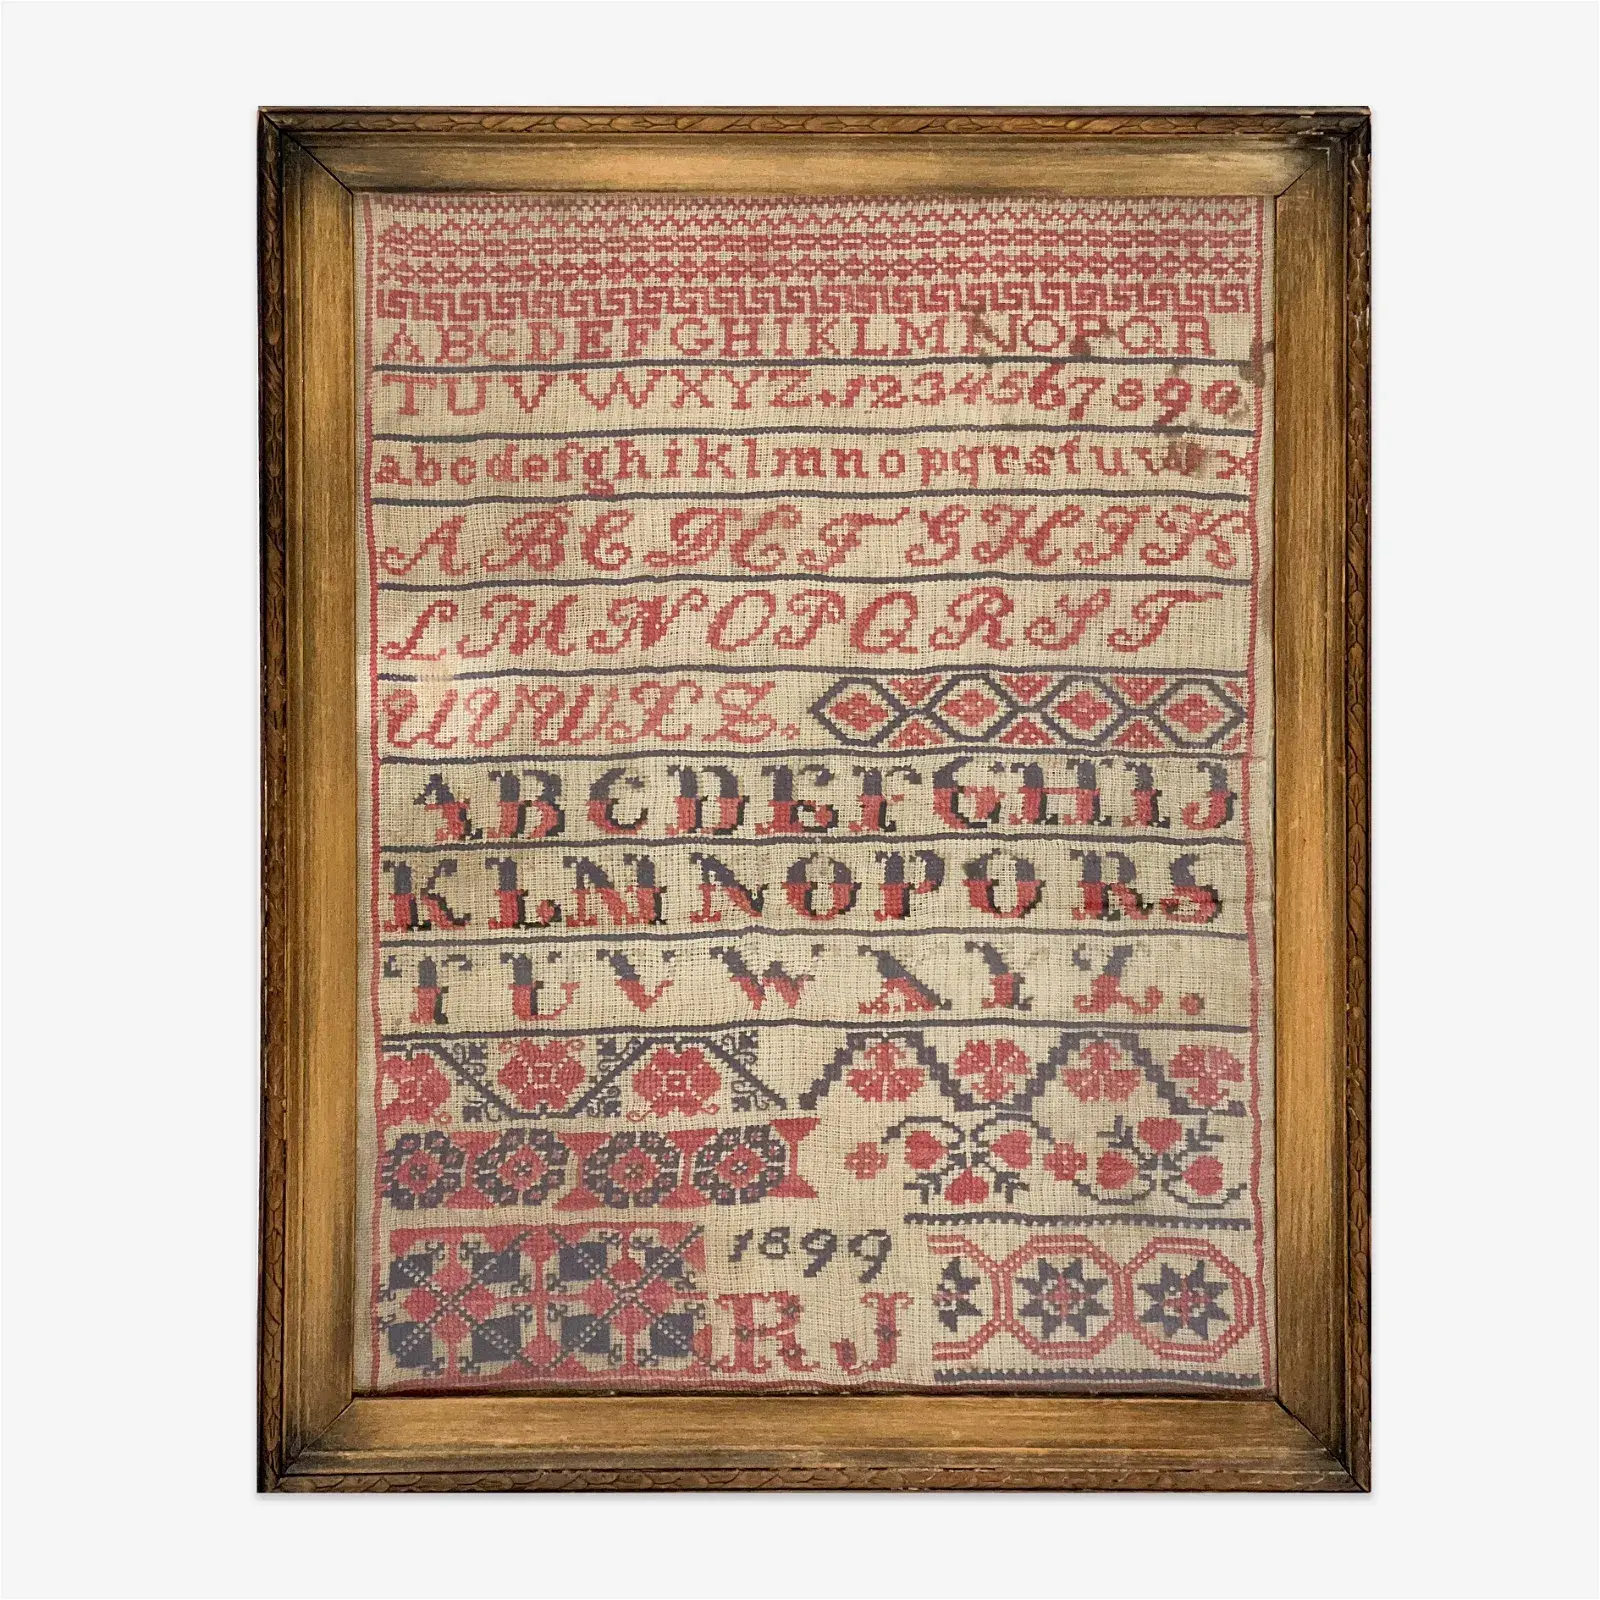 ABCDEFGHIKLMNOPQR
TUVWXYZ.1234567890
abcdefghiklmnopqrstuvwx
ABCDEFGHIK
LMNOPQRST
UVWXZ.
ABCDEFGHIJ
KLMNOPQRS
TUVWXYZ.
1899
RJ